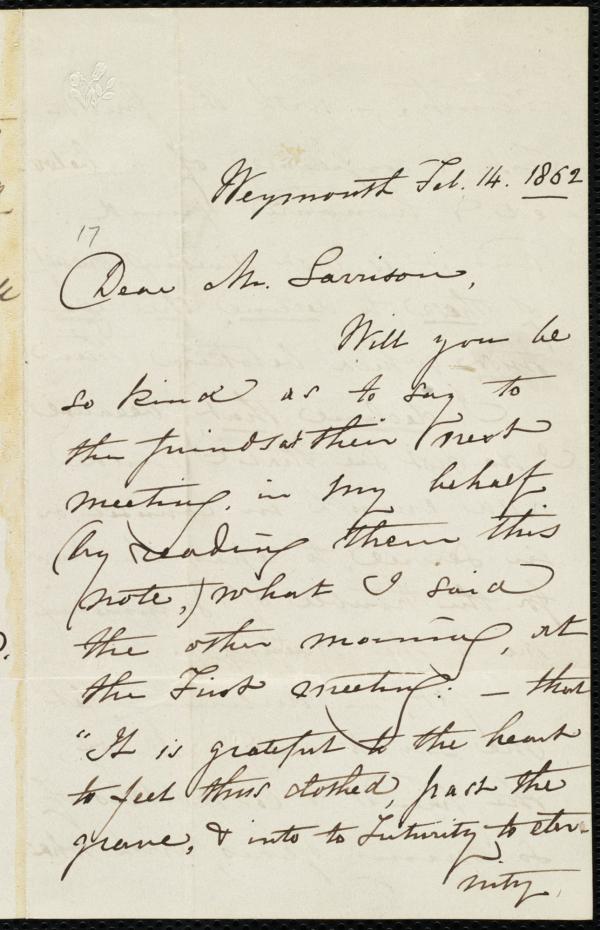 Weymouth Feb. 14. 1862
17
Dear Mr. Garrison,
Will you be
so kind as to say to
the friends at their next
meeting, in my behalf
(by reading them this
note,) what I said
the other morning, at
the First meeting: — that
"It is grateful to the heart
to feel thus clothed, past the
grave, & into to Futurity to eter-
nity,